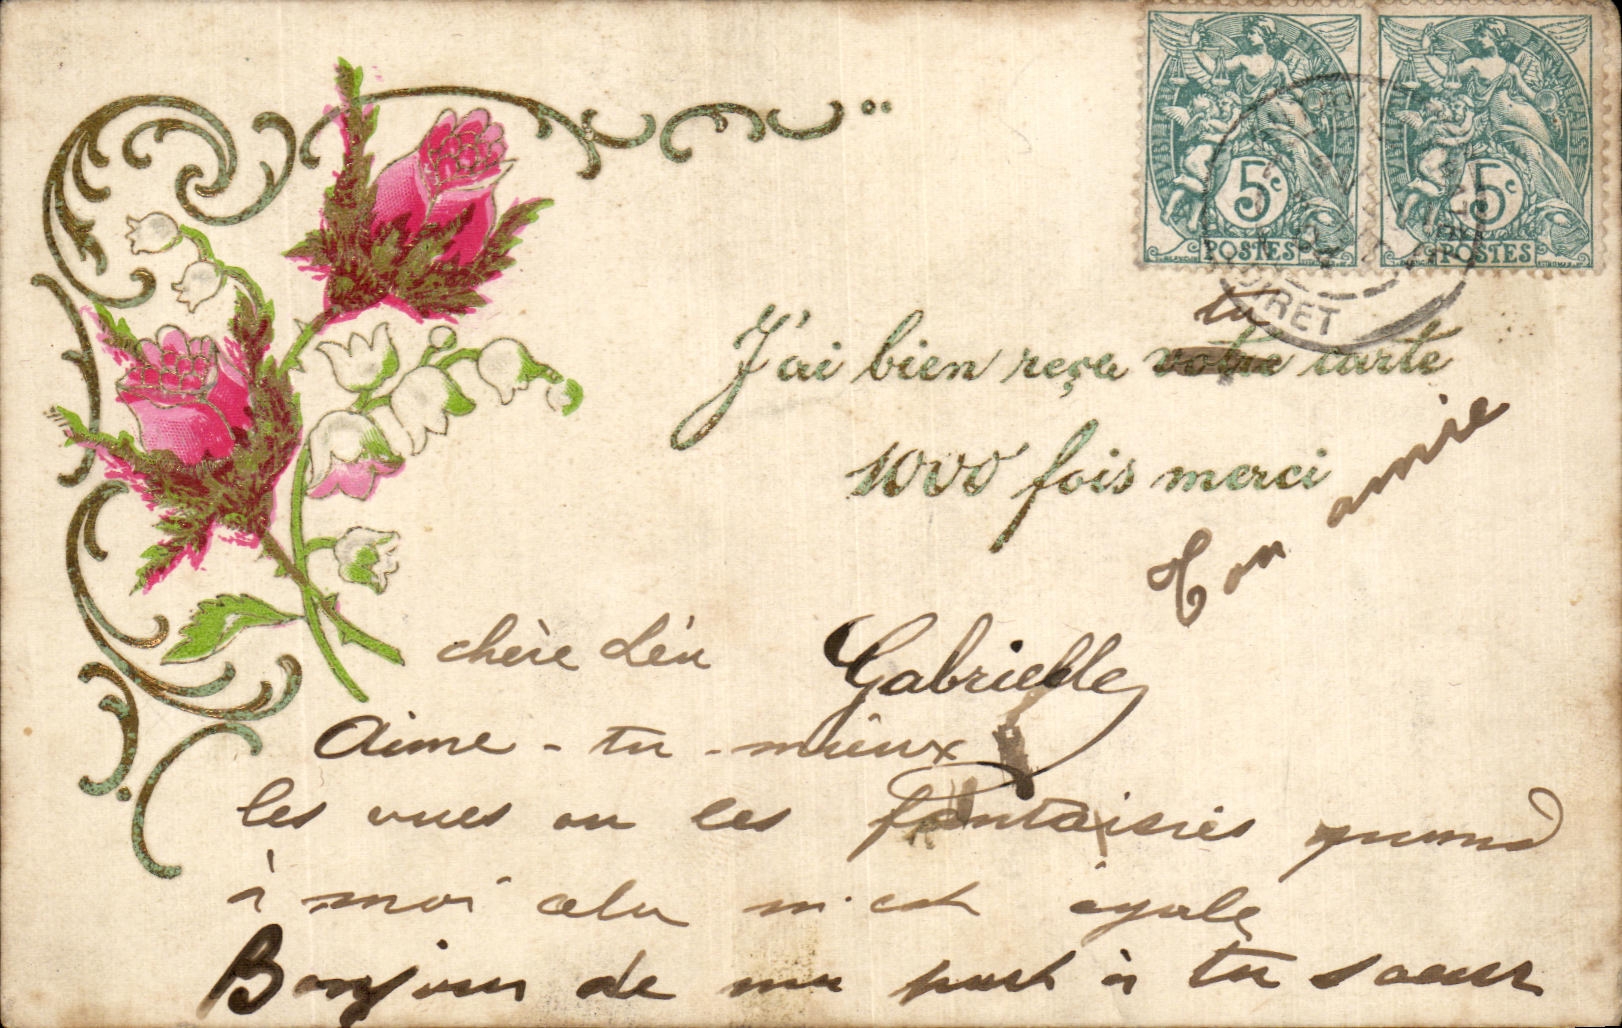 5c
POSTES
5c
POSTES
LOIRET
ta
J'ai bien reçu votre carte
1000 fois merci
Ton amie
Gabrielle
chère Léa
Aime-tu-mieux
les vues ou les fantaisies quand
à moi cela m'est égale
Bonjour de ma part à ta soeur